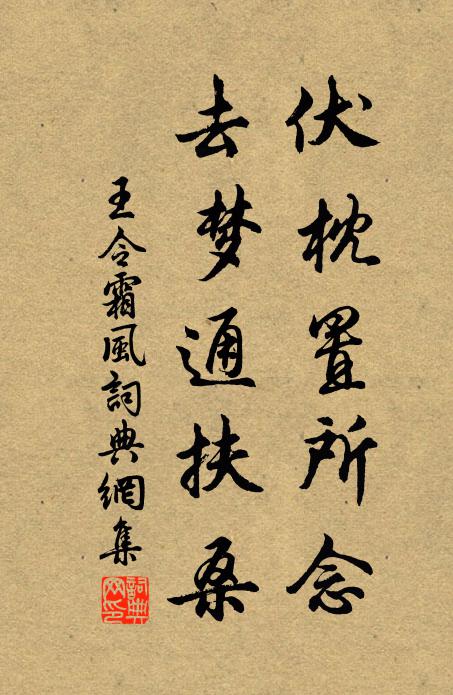 伏枕置所念
去梦通扶桑
王令霜風詞典網集
詞典网印